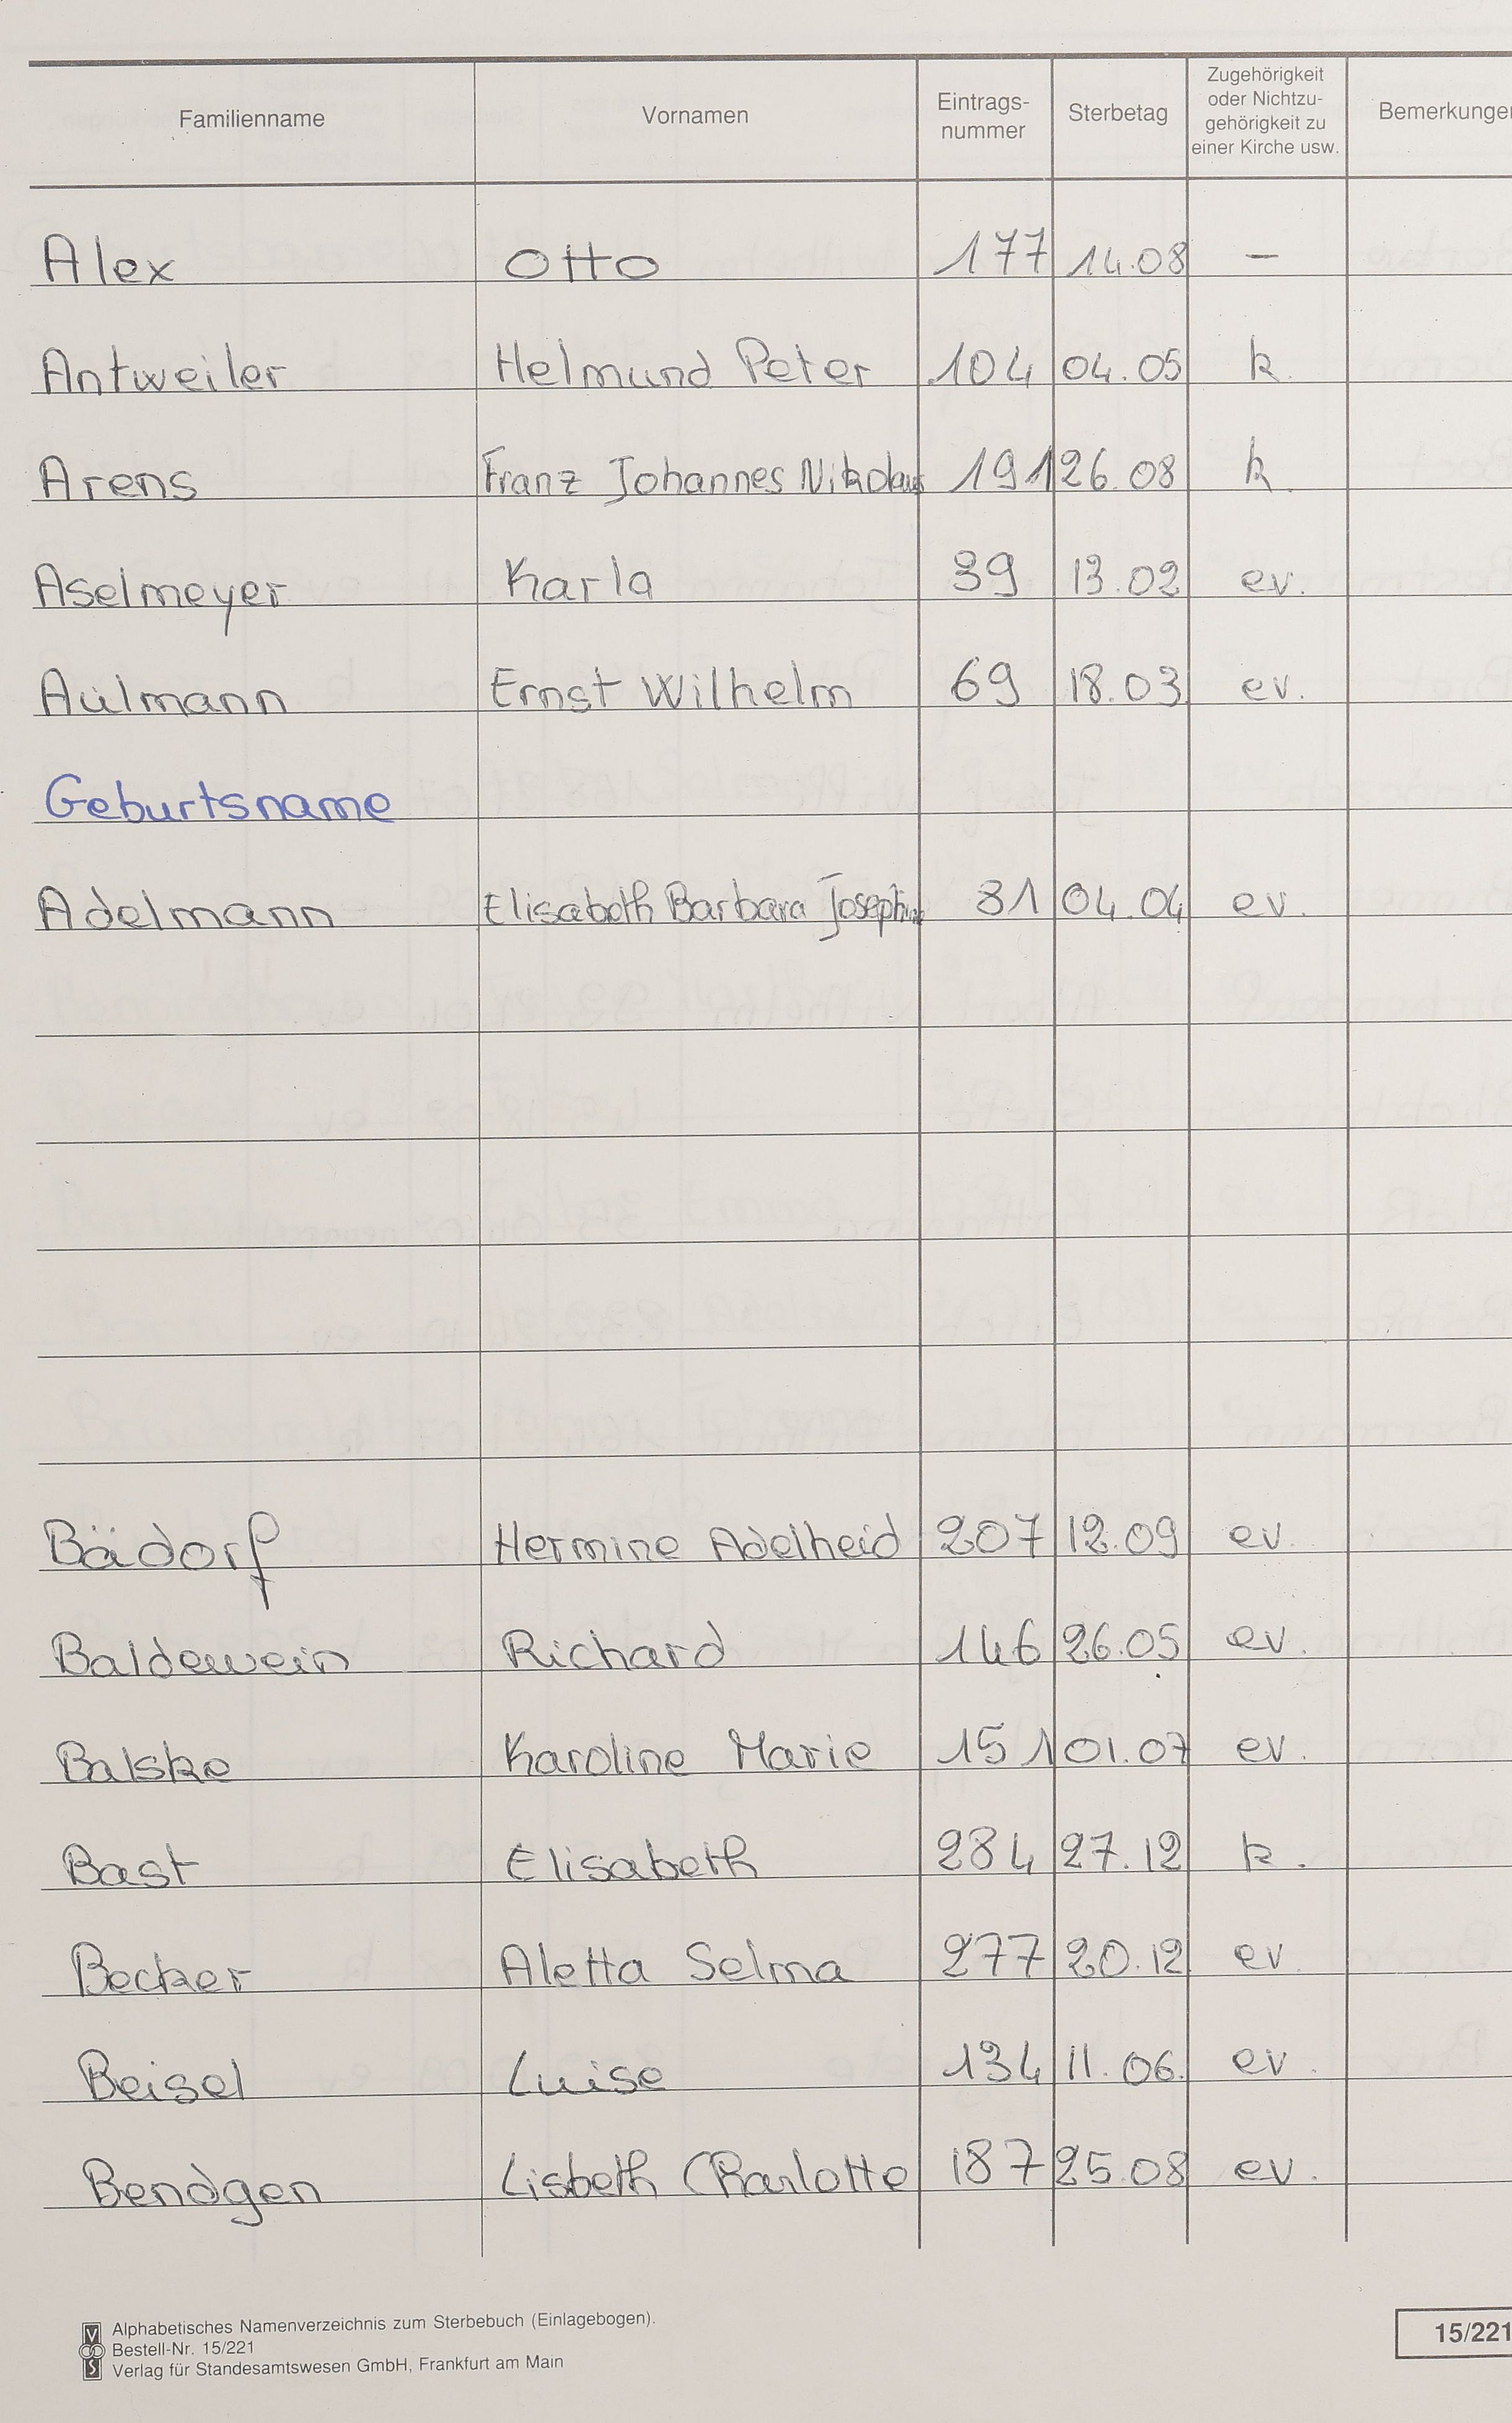 Familienname Vornamen Eintrags-nummer Sterbetag Zugehörigkeit oder Nichtzu-gehörigkeit zu einer Kirche usw. Bemerkungen
Alex Otto 177 14.08 —
Antweiler Helmund Peter 104 04.05 k.
Arens Franz Johannes Nikolaus 191 26.08 k.
Aselmeyer Karla 39 13.02 ev.
Aulmann Ernst Wilhelm 69 18.03 ev.
Geburtsname
Adelmann Elisabeth Barbara Josephine 81 04.04 ev.
Bädorf Hermine Adelheid 207 12.09 ev.
Baldewein Richard 146 26.05 ev.
Balske Karoline Marie 151 01.07 ev.
Bast Elisabeth 284 27.12 k.
Becker Aletta Selma 277 20.12 ev
Beisel Luise 134 11.06. ev.
Bendgen Lisbeth Charlotte 187 25.08 ev.
Alphabetisches Namenverzeichnis zum Sterbebuch (Einlagebogen).
Bestell-Nr. 15/221
Verlag für Standesamtswesen GmbH, Frankfurt am Main
15/221